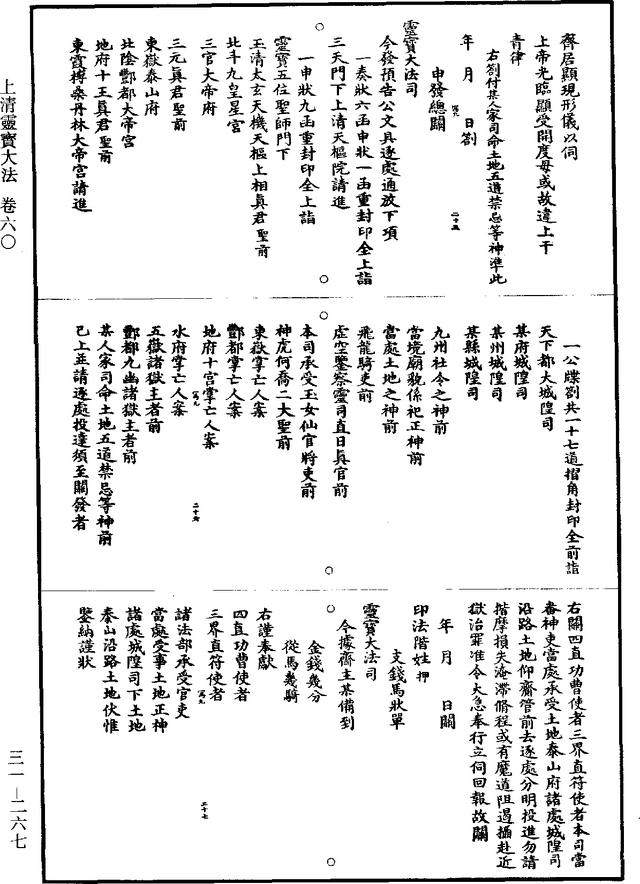 上清靈寶大法　卷六〇
三一－二六七
齊居顯現形儀以伺
上帝光臨顯受開度毋或故違上干
青律
右劄付某人家司命土地五道禁忌等神準此
年　月　日劄
申發總關
二十五
靈寶大法司
今發預告公文具逐處通放下項
一奏狀六函申狀一函重封印全上詣
三天門下上清天樞院請進
一申狀九函重封印全上詣
靈寶五位聖師門下
玉清太玄天機天樞上相真君聖前
北斗九皇星宮
三官大帝府
三元真君聖前
東嶽泰山府
北陰酆都大帝宮
地府十王真君聖前
東霞榑桑丹林大帝宮請進
一公牒劄共一十七道摺角封印全前詣
天下都大城隍司
某府城隍司
某州城隍司
某縣城隍司
九州社令之神前
當境廟貌係祀正神前
當處土地之神前
飛龍騎吏前
虛空鑒察靈司直日真官前
本司承受玉女仙官將吏前
神虎何喬二大聖前
東嶽掌亡人案
酆都掌亡人案
地府十宮掌亡人案
二十六
水府掌亡人案
五嶽諸獄主者前
酆都九幽諸獄主者前
某人家司命土地五道禁忌等神前
已上並請逐處投達須至關發者
右關四直功曹使者三界直符使者本司當
番神吏當處承受土地泰山府諸處城隍司
沿路土地仰齋管前去逐處分明投進勿請
揩摩損失淹滯脩程或有魔道阻遏攝赴近
獄治罪准令大急奉行立伺回報故關
年　月　日關
印法階姓　押
支錢馬狀單
靈寶大法司
今據齋主某備到
金錢幾分
從馬幾騎
右謹奉獻
四直功曹使者
三界直符使者
二十七
諸法部承受官吏
當處受事土地正神
諸處城隍司下土地
泰山沿路土地伏惟
鑒納謹狀